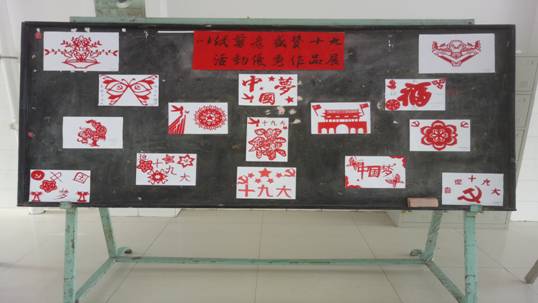 以纸剪意盛赞十九
活动优秀作品展
中國夢
福
十九大
十九大
中国梦
梦
十九大
喜迎十九大